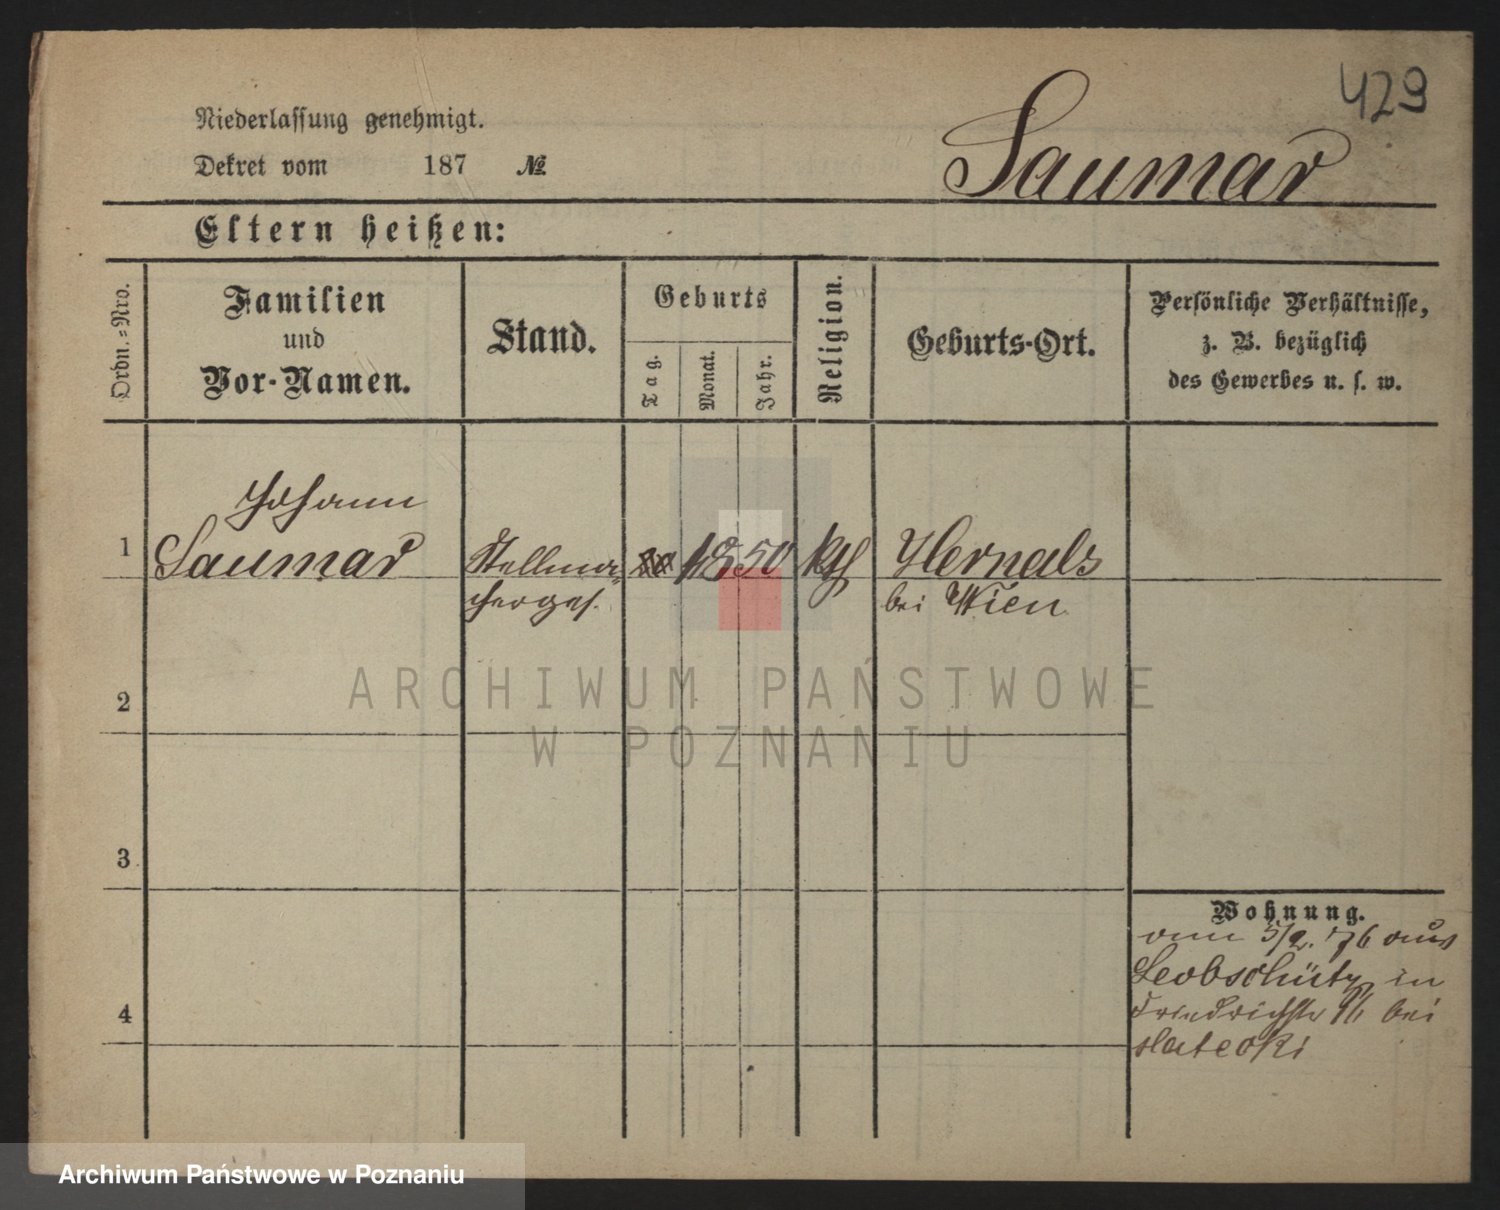 429
Niederlassung genehmigt.
Dekret vom 187 №
Saumar
Eltern heißen:
Ordn.-Nro.
Familien
und
Vor-Namen.
Stand.
Geburts
Tag.
Monat.
Jahr.
Religion.
Geburts-Ort.
Persönliche Verhältnisse,
z. B. bezüglich
des Gewerbes u. s. w.
Johann
1 Saumar Stellma- 1850 kth Hernals
cherges. bei Wien
2
3
4
Wohnung.
vom 5/2. 76 aus
Leobschütz in
Friedrichstr bei
ARCHIWUM PAŃSTWOWE
W POZNANIU
Archiwum Państwowe w Poznaniu